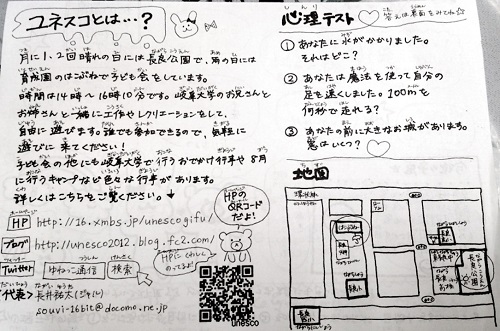 ユネスコとは…？
月に1、2回晴れの日には長良公園で、雨の日には
育成園のはこぶねで子ども会をしています。
時間は14時～16時10分です。岐阜大学のお兄さんと
お姉さんと一緒に工作やレクリエーションをして、
自由に遊びます。誰でも参加できるので、気軽に
遊びに来てください!
子ども会の他にも岐阜大学で行うおでかけ行事や8月
に行うキャンプなど色々な行事があります。
詳しくはこちらをご覧ください。↓
HP http://16.xmbs.jp/unescogifu/
ブログ http://unesco2012.blog.fc2.com/
Twitter ゆねっこ通信 検索
代表 長井
souvi-16bit@docomo.ne.jp
HPの
QRコード
だよ!
HPにくわしく
のってるよ!
unesco
心理テスト
答えは裏面をみてね☆
① あなたに水がかかりました。
それはどこ?
② あなたは魔法を使って自分の
足を速くしました。100mを
何秒で走れる?
③ あなたの前に大きなお城があります。
窓はいくつ?
地図